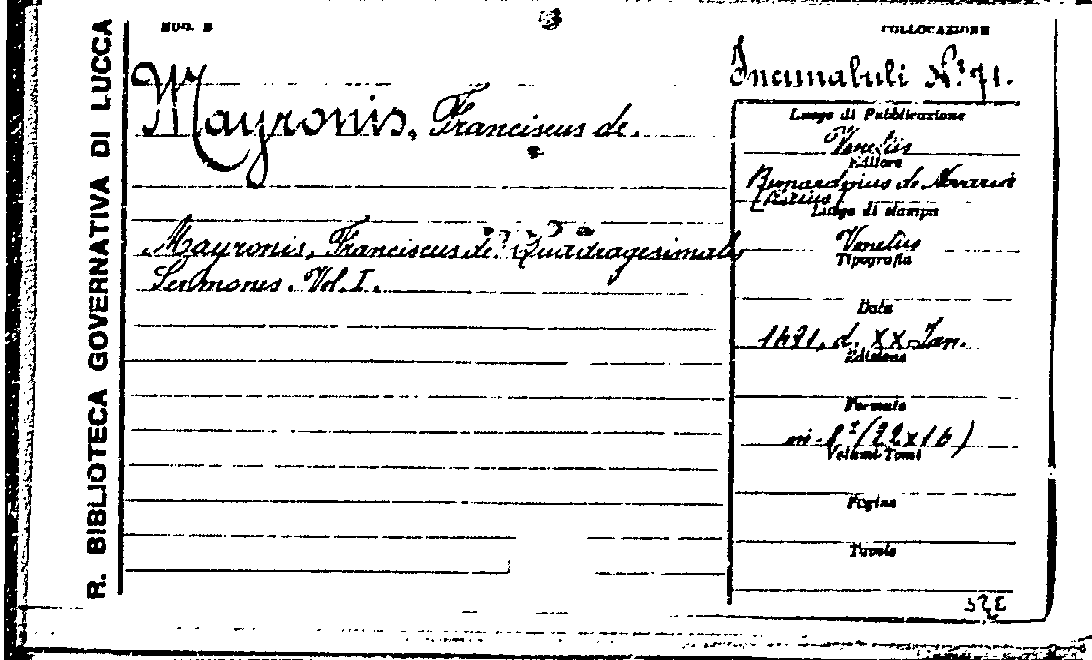 R. BIBLIOTECA GOVERNATIVA DI LUCCA
MOD. B
COLLOCAZIONE
Incunabuli N.° 71.
Mayronis, Franciscus de.
Mayronis, Franciscus de. Quadragesimales
Sermones. Vol. I.
Luogo di Pubblicazione
Venetiis
Editore
Bernardinus de
Luogo di stampa
Venetiis
Tipografia
Data
1491, d. XX Jan.
Edizione
Formato
in-8° (22x16)
Volumi-Tomi
Pagine
Tavole